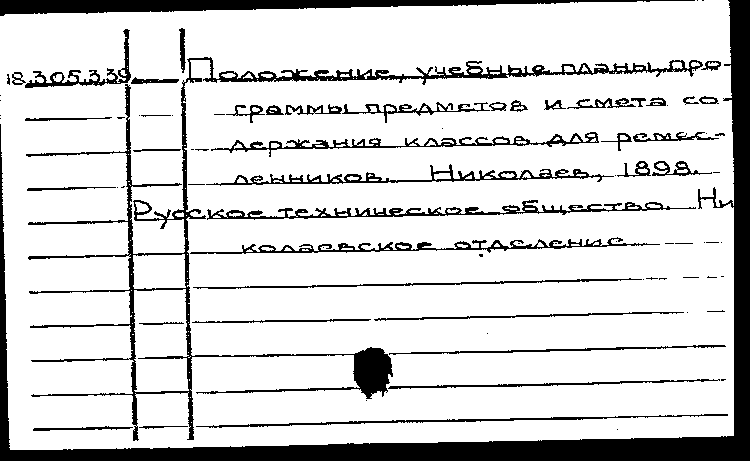 18.305.339 Положение, учебные планы, про-
граммы предметов и смета со-
держания классов для ремес-
ленников. Николаев, 1898.
Русское техническое общество. Ни
колаевское отделение